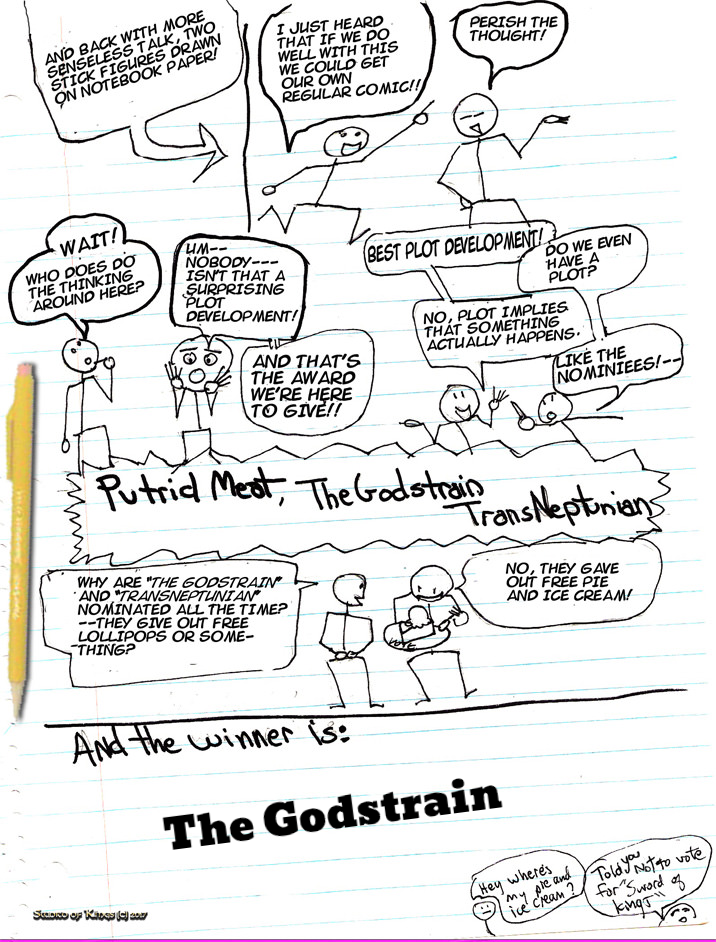 AND BACK WITH MORE
SENSELESS TALK, TWO
STICK FIGURES DRAWN
ON NOTEBOOK PAPER!
I JUST HEARD
THAT IF WE DO
WELL WITH THIS
WE COULD GET
OUR OWN
REGULAR COMIC!!
PERISH THE
THOUGHT!
WAIT!
WHO DOES DO
THE THINKING
AROUND HERE?
UM--
NOBODY---
ISN'T THAT A
SURPRISING
PLOT
DEVELOPMENT!
AND THAT'S
THE AWARD
WE'RE HERE
TO GIVE!!
BEST PLOT DEVELOPMENT!
DO WE EVEN
HAVE A
PLOT?
NO, PLOT IMPLIES
THAT SOMETHING
ACTUALLY HAPPENS.
LIKE THE
NOMINIEES!--
Putrid Meat, The Godstrain
TransNeptunian
WHY ARE "THE GODSTRAIN"
AND "TRANSNEPTUNIAN"
NOMINATED ALL THE TIME?
--THEY GIVE OUT FREE
LOLLIPOPS OR SOME-
THING?
NO, THEY GAVE
OUT FREE PIE
AND ICE CREAM!
VOTE
And the winner is:
The Godstrain
Hey where's
my pie and
ice cream?
Told you
Not to vote
for "Sword of
Kings"
Sword of Kings (C) 2017